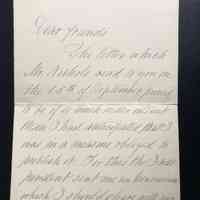 Dear friends
The letter which
Mr. Nichols send to you on
the 15th of September proved
to be of so much
than I had anticipated that I
was in a measure obliged to
publish it. For this the
sent me an honorarium
which I should share with you